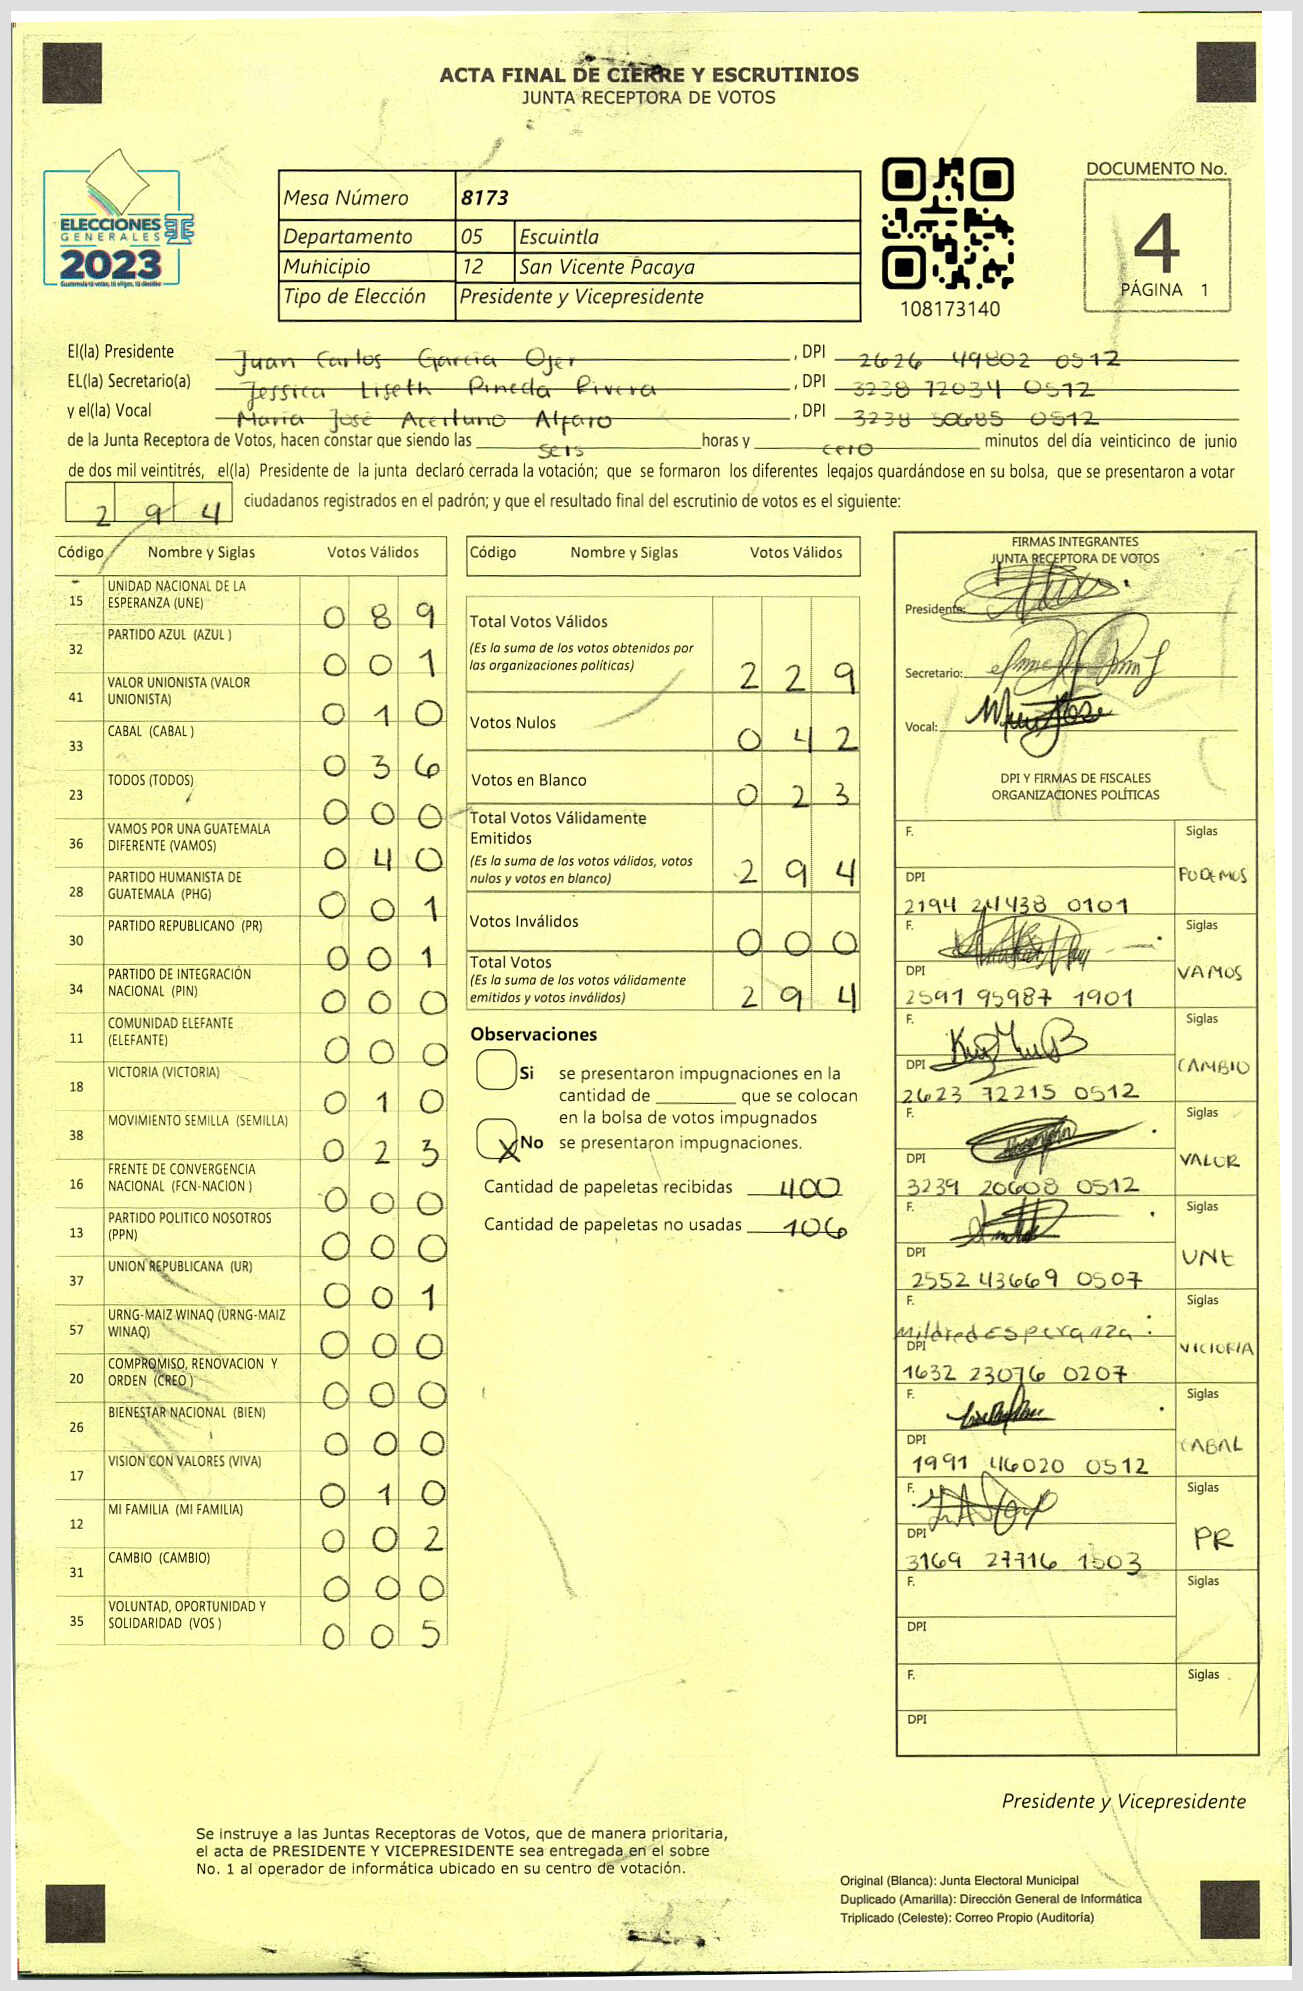 ACTA FINAL DE CIERRE Y ESCRUTINIOS
JUNTA RECEPTORA DE VOTOS
ELECCIONES
GENERALES
2023
Guatemala tú votas, tú eliges, tú decides
Mesa Número 8173
Departamento 05 Escuintla
Municipio 12 San Vicente Pacaya
Tipo de Elección Presidente y Vicepresidente
108173140
DOCUMENTO No.
4
PÁGINA 1
El(la) Presidente Juan Carlos García Ojer , DPI 2626 49802 0512
EL(la) Secretario(a) Jessica Liseth Pineda Rivera , DPI 3238 72034 0512
y el(la) Vocal María José Aceituno Alfaro , DPI 3238 50685 0512
de la Junta Receptora de Votos, hacen constar que siendo las seis horas y cero minutos del día veinticinco de junio
de dos mil veintitrés, el(la) Presidente de la junta declaró cerrada la votación; que se formaron los diferentes legajos guardándose en su bolsa, que se presentaron a votar
294 ciudadanos registrados en el padrón; y que el resultado final del escrutinio de votos es el siguiente:
Código Nombre y Siglas Votos Válidos
15 UNIDAD NACIONAL DE LA ESPERANZA (UNE) 089
32 PARTIDO AZUL (AZUL ) 001
41 VALOR UNIONISTA (VALOR UNIONISTA) 010
33 CABAL (CABAL ) 036
23 TODOS (TODOS) 000
36 VAMOS POR UNA GUATEMALA DIFERENTE (VAMOS) 040
28 PARTIDO HUMANISTA DE GUATEMALA (PHG) 001
30 PARTIDO REPUBLICANO (PR) 001
34 PARTIDO DE INTEGRACIÓN NACIONAL (PIN) 000
11 COMUNIDAD ELEFANTE (ELEFANTE) 000
18 VICTORIA (VICTORIA) 010
38 MOVIMIENTO SEMILLA (SEMILLA) 023
16 FRENTE DE CONVERGENCIA NACIONAL (FCN-NACION ) 000
13 PARTIDO POLITICO NOSOTROS (PPN) 000
37 UNION REPUBLICANA (UR) 001
57 URNG-MAIZ WINAQ (URNG-MAIZ WINAQ) 000
20 COMPROMISO, RENOVACION Y ORDEN (CREO ) 000
26 BIENESTAR NACIONAL (BIEN) 000
17 VISION CON VALORES (VIVA) 010
12 MI FAMILIA (MI FAMILIA) 002
31 CAMBIO (CAMBIO) 000
35 VOLUNTAD, OPORTUNIDAD Y SOLIDARIDAD (VOS ) 005
Código Nombre y Siglas Votos Válidos
Total Votos Válidos 229
(Es la suma de los votos obtenidos por
las organizaciones políticas)
Votos Nulos 042
Votos en Blanco 023
Total Votos Válidamente
Emitidos 294
(Es la suma de los votos válidos, votos
nulos y votos en blanco)
Votos Inválidos 000
Total Votos 294
(Es la suma de los votos válidamente
emitidos y votos inválidos)
Observaciones
Si se presentaron impugnaciones en la
cantidad de ________ que se colocan
en la bolsa de votos impugnados
X No se presentaron impugnaciones.
Cantidad de papeletas recibidas 400
Cantidad de papeletas no usadas 106
FIRMAS INTEGRANTES
JUNTA RECEPTORA DE VOTOS
Presidente:
Secretario:
Vocal:
DPI Y FIRMAS DE FISCALES
ORGANIZACIONES POLÍTICAS
F. Siglas
PODEMOS
DPI 2194 24438 0101
F. Siglas
VAMOS
DPI 2591 95987 1901
F. Siglas
CAMBIO
DPI 2623 72215 0512
F. Siglas
VALOR
DPI 3239 20608 0512
F. Siglas
UNE
DPI 2552 43669 0507
F. Mildred Esperanza Siglas
VICTORIA
DPI 1632 23076 0207
F. Siglas
CABAL
DPI 1991 46020 0512
F. Siglas
PR
DPI 3169 27716 1503
F. Siglas
DPI
F. Siglas
DPI
Presidente y Vicepresidente
Se instruye a las Juntas Receptoras de Votos, que de manera prioritaria,
el acta de PRESIDENTE Y VICEPRESIDENTE sea entregada en el sobre
No. 1 al operador de informática ubicado en su centro de votación.
Original (Blanca): Junta Electoral Municipal
Duplicado (Amarilla): Dirección General de Informática
Triplicado (Celeste): Correo Propio (Auditoría)